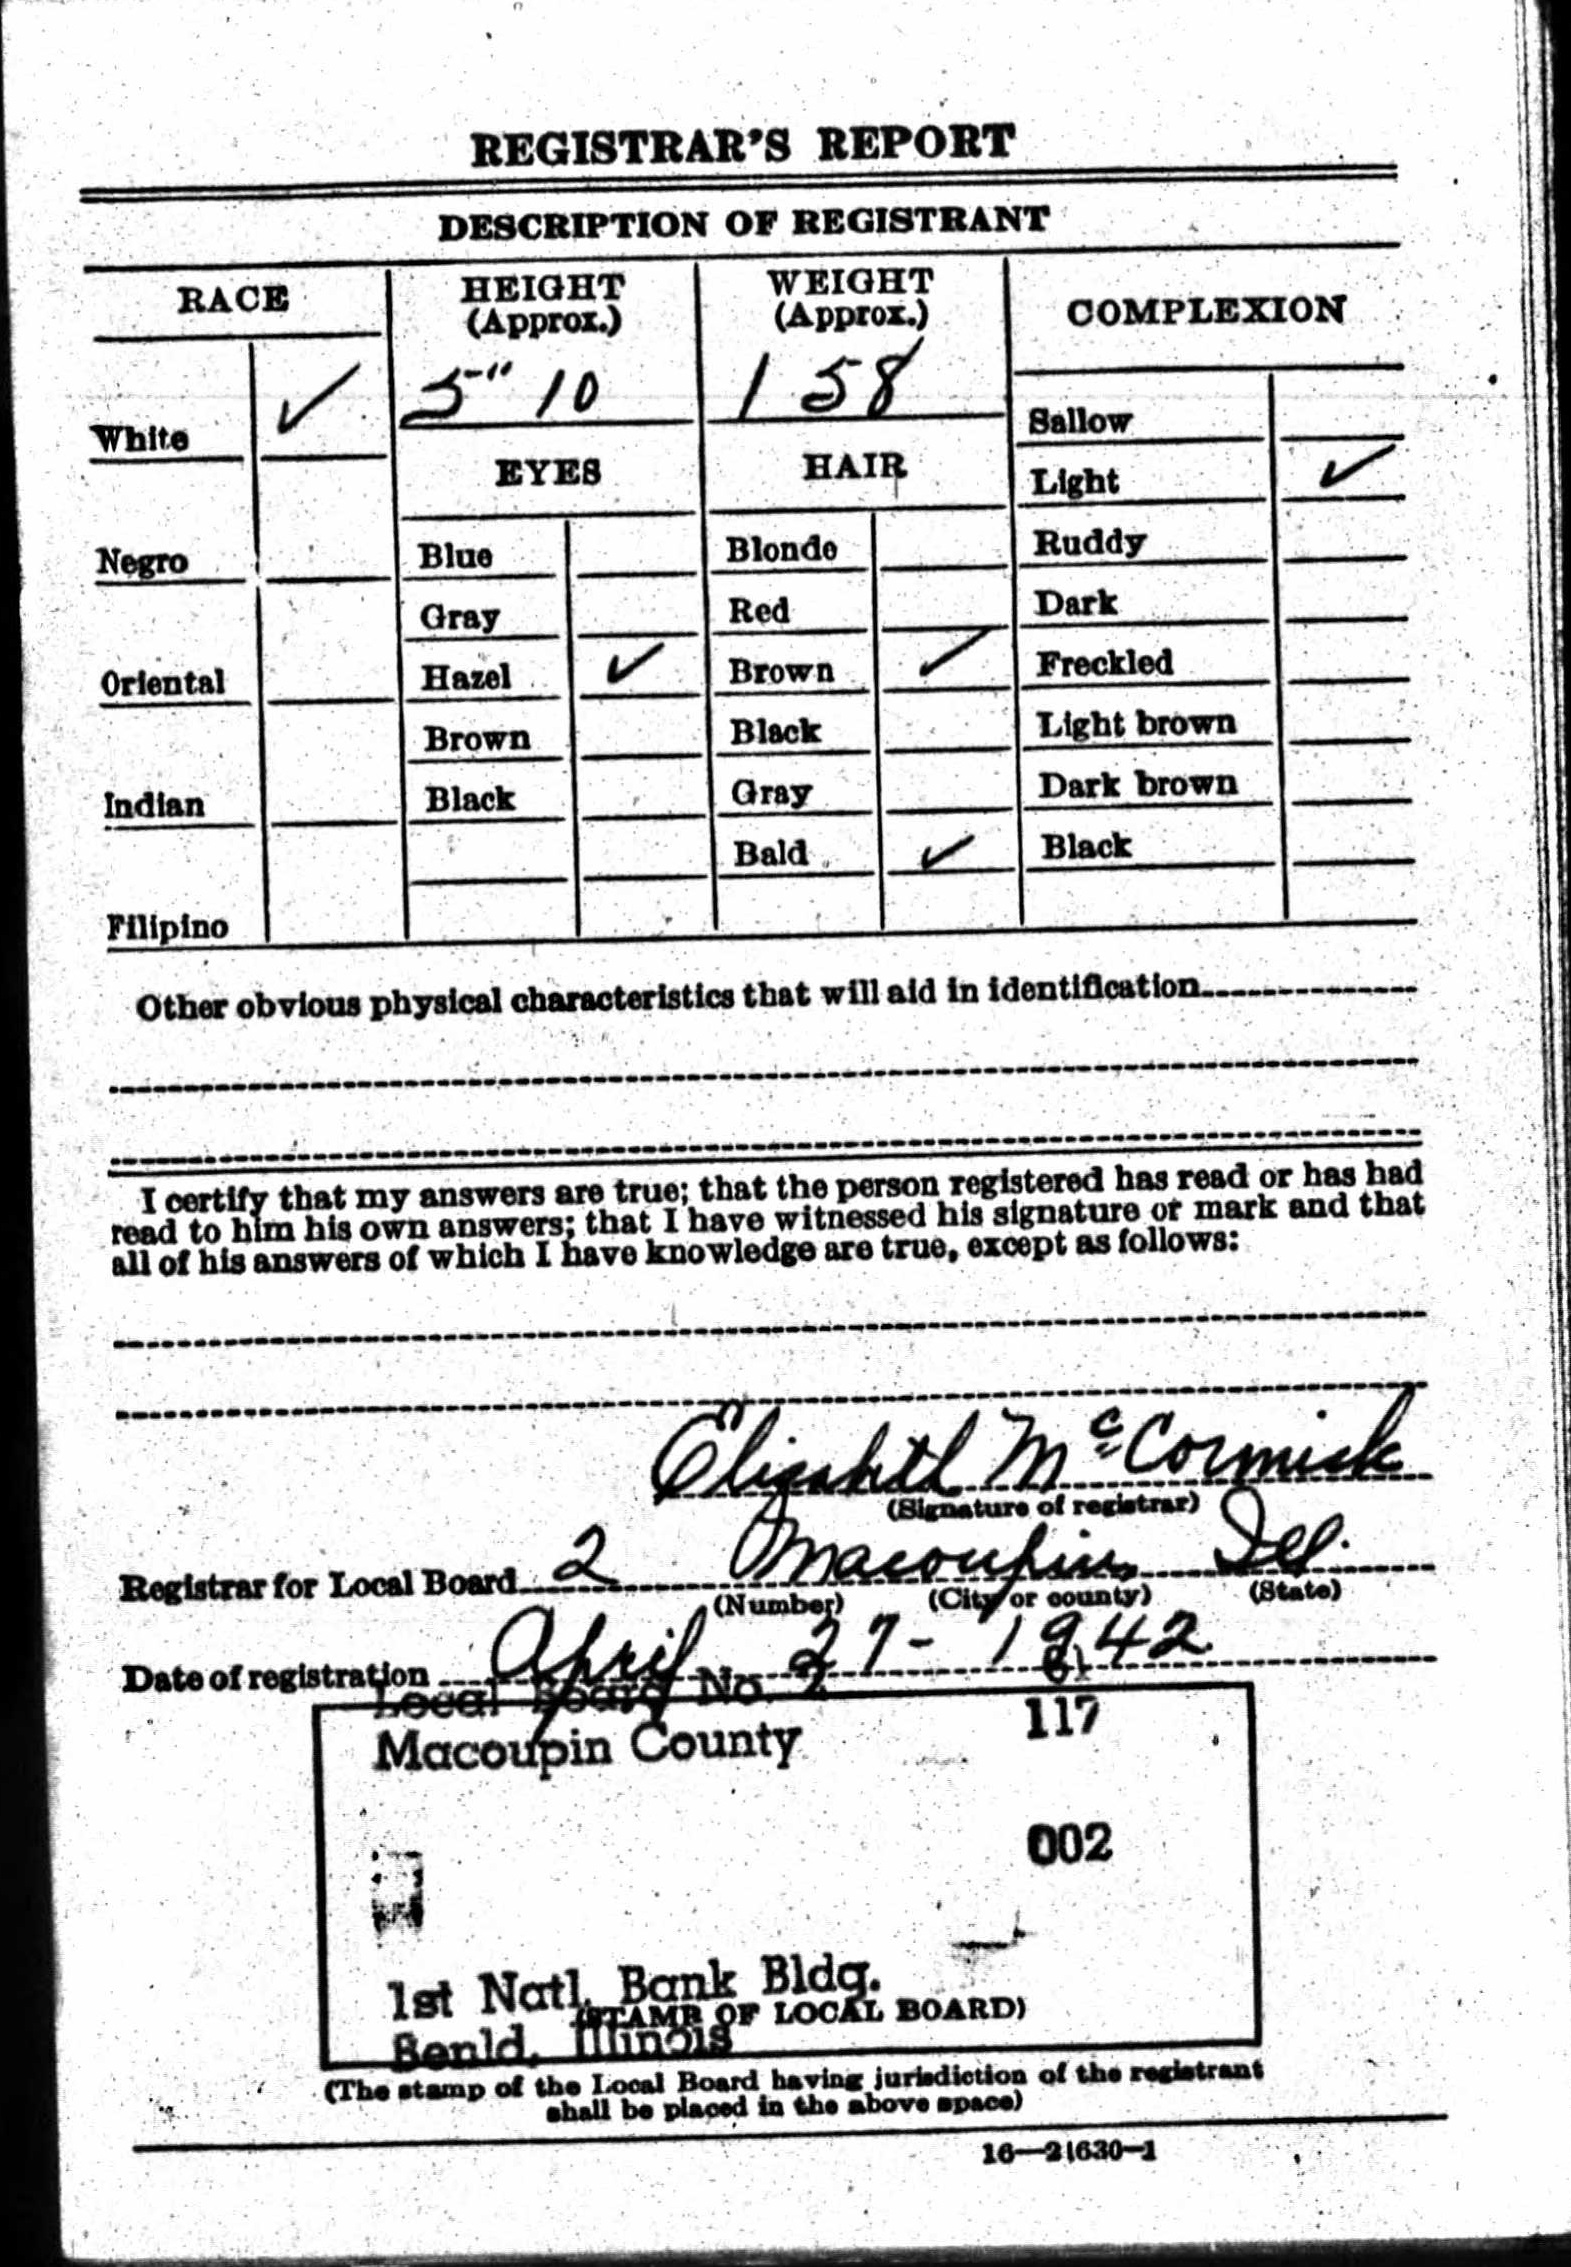 REGISTRAR'S REPORT
DESCRIPTION OF REGISTRANT
RACE
HEIGHT
(Approx.)
WEIGHT
(Approx.)
COMPLEXION
White ✓
5" 10
1 58
Sallow
EYES
HAIR
Light ✓
Negro
Blue
Blonde
Ruddy
Gray
Red
Dark
Oriental
Hazel ✓
Brown ✓
Freckled
Brown
Black
Light brown
Indian
Black
Gray
Dark brown
Bald ✓
Black
Filipino
Other obvious physical characteristics that will aid in identification
I certify that my answers are true; that the person registered has read or has had
read to him his own answers; that I have witnessed his signature or mark and that
all of his answers of which I have knowledge are true, except as follows:
Elizabeth McCormick
(Signature of registrar)
Registrar for Local Board 2 Macoupin Ill.
(Number) (City or county) (State)
Date of registration April 27 - 1942
Local Board No. 2 61
Macoupin County 117
002
1st Natl. Bank Bldg.
(STAMP OF LOCAL BOARD)
Benld, Illinois
(The stamp of the Local Board having jurisdiction of the registrant
shall be placed in the above space)
16—21630-1